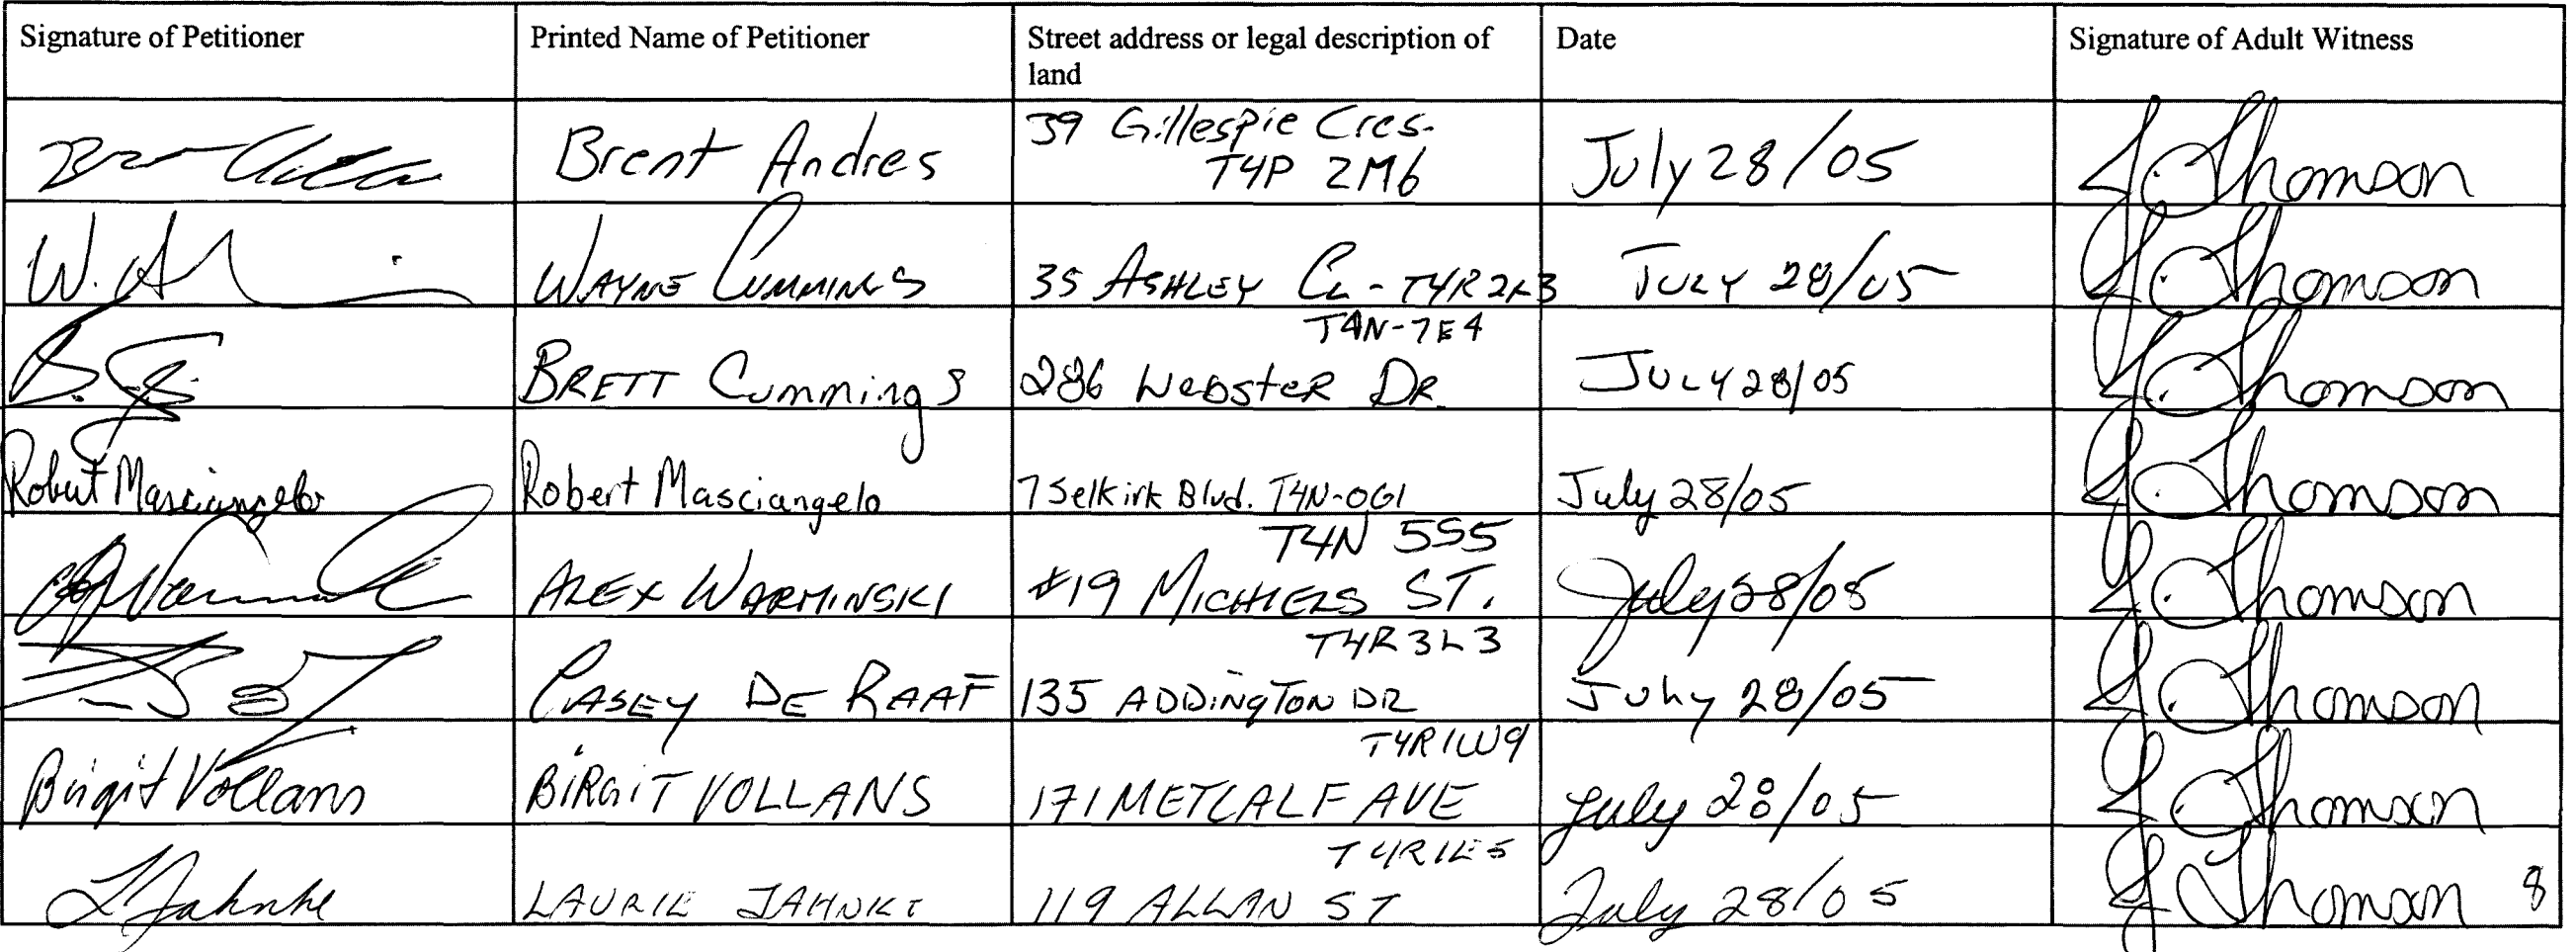 Signature of Petitioner Printed Name of Petitioner Street address or legal description of Date Signature of Adult Witness
land
39 Gillespie Cres.
Brent Andres T4P 2M6 July 28/05 J. Thomson
W. WAYNE CUMMINGS 35 ASHLEY CL - T4R2K3 JULY 28/05 J. Thomson
T4N-7E4
B. BRETT Cummings 286 WebsteR DR. JULY 28/05 J. Thomson
Robert Masciangelo Robert Masciangelo 7 Selkirk Blvd. T4N-0G1 July 28/05 J. Thomson
T4N 5S5
ALEX WARMINSKI #19 MICHIELS ST. July 28/05 J. Thomson
T4R3L3
CASEY DE RAAF 135 ADDINGTON DR JULY 28/05 J. Thomson
T4R1W9
Birgit Vollans BIRGIT VOLLANS 171 METCALF AVE July 28/05 J. Thomson
T4R1E5
L Jahnke LAURIE JAHNKE 119 ALLAN ST July 28/05 J Thomson 8